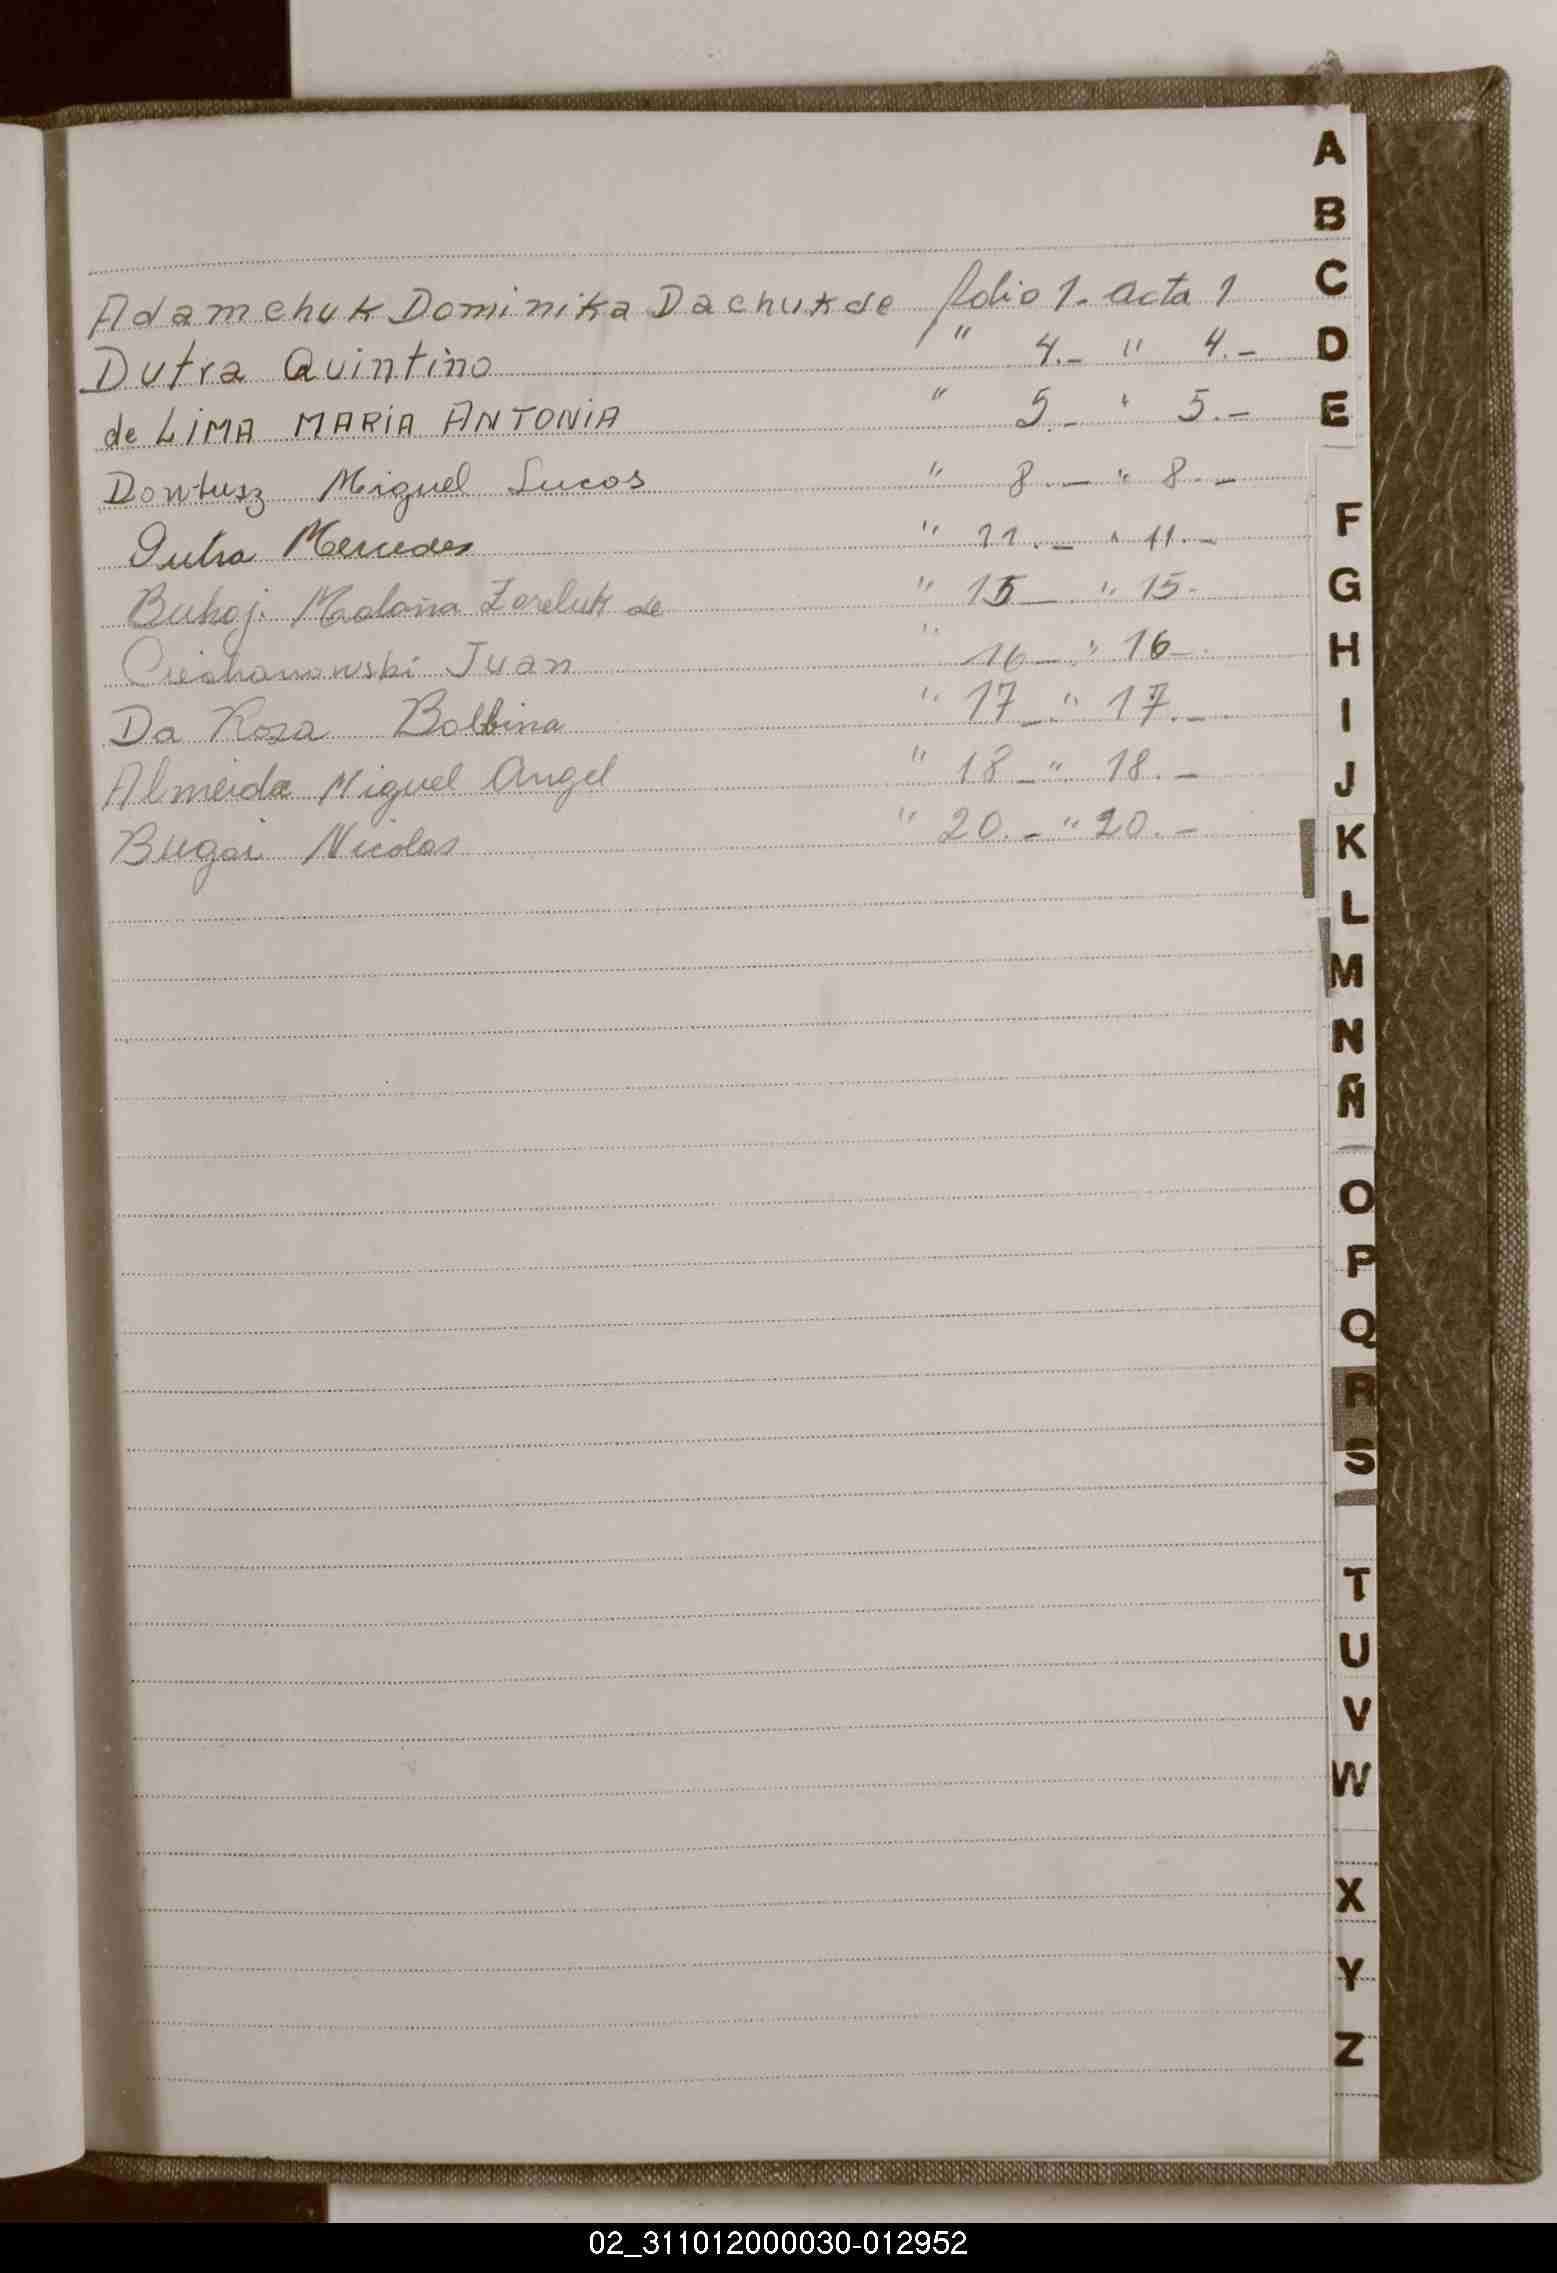 Adamchuk Dominika Dachuk de folio 1.- acta 1
Dutra Quintino " 4.- " 4.-
de LIMA MARIA ANTONIA " 5.- " 5.-
Dontusz Miguel Lucas " 8.- " 8.-
Dutra Mercedes " 11.- " 11.-
Bukoj. de " 15- " 15-
Ciechanowski Juan " 16- " 16-
Da Rosa Balbina " 17- " 17.-
Almeida Miguel Angel " 18- " 18.-
Bugai Nicolas " 20.- " 20.-
A
B
C
D
E
F
G
H
I
J
K
L
M
N
Ñ
O
P
Q
R
S
T
U
V
W
X
Y
Z
02_311012000030-012952